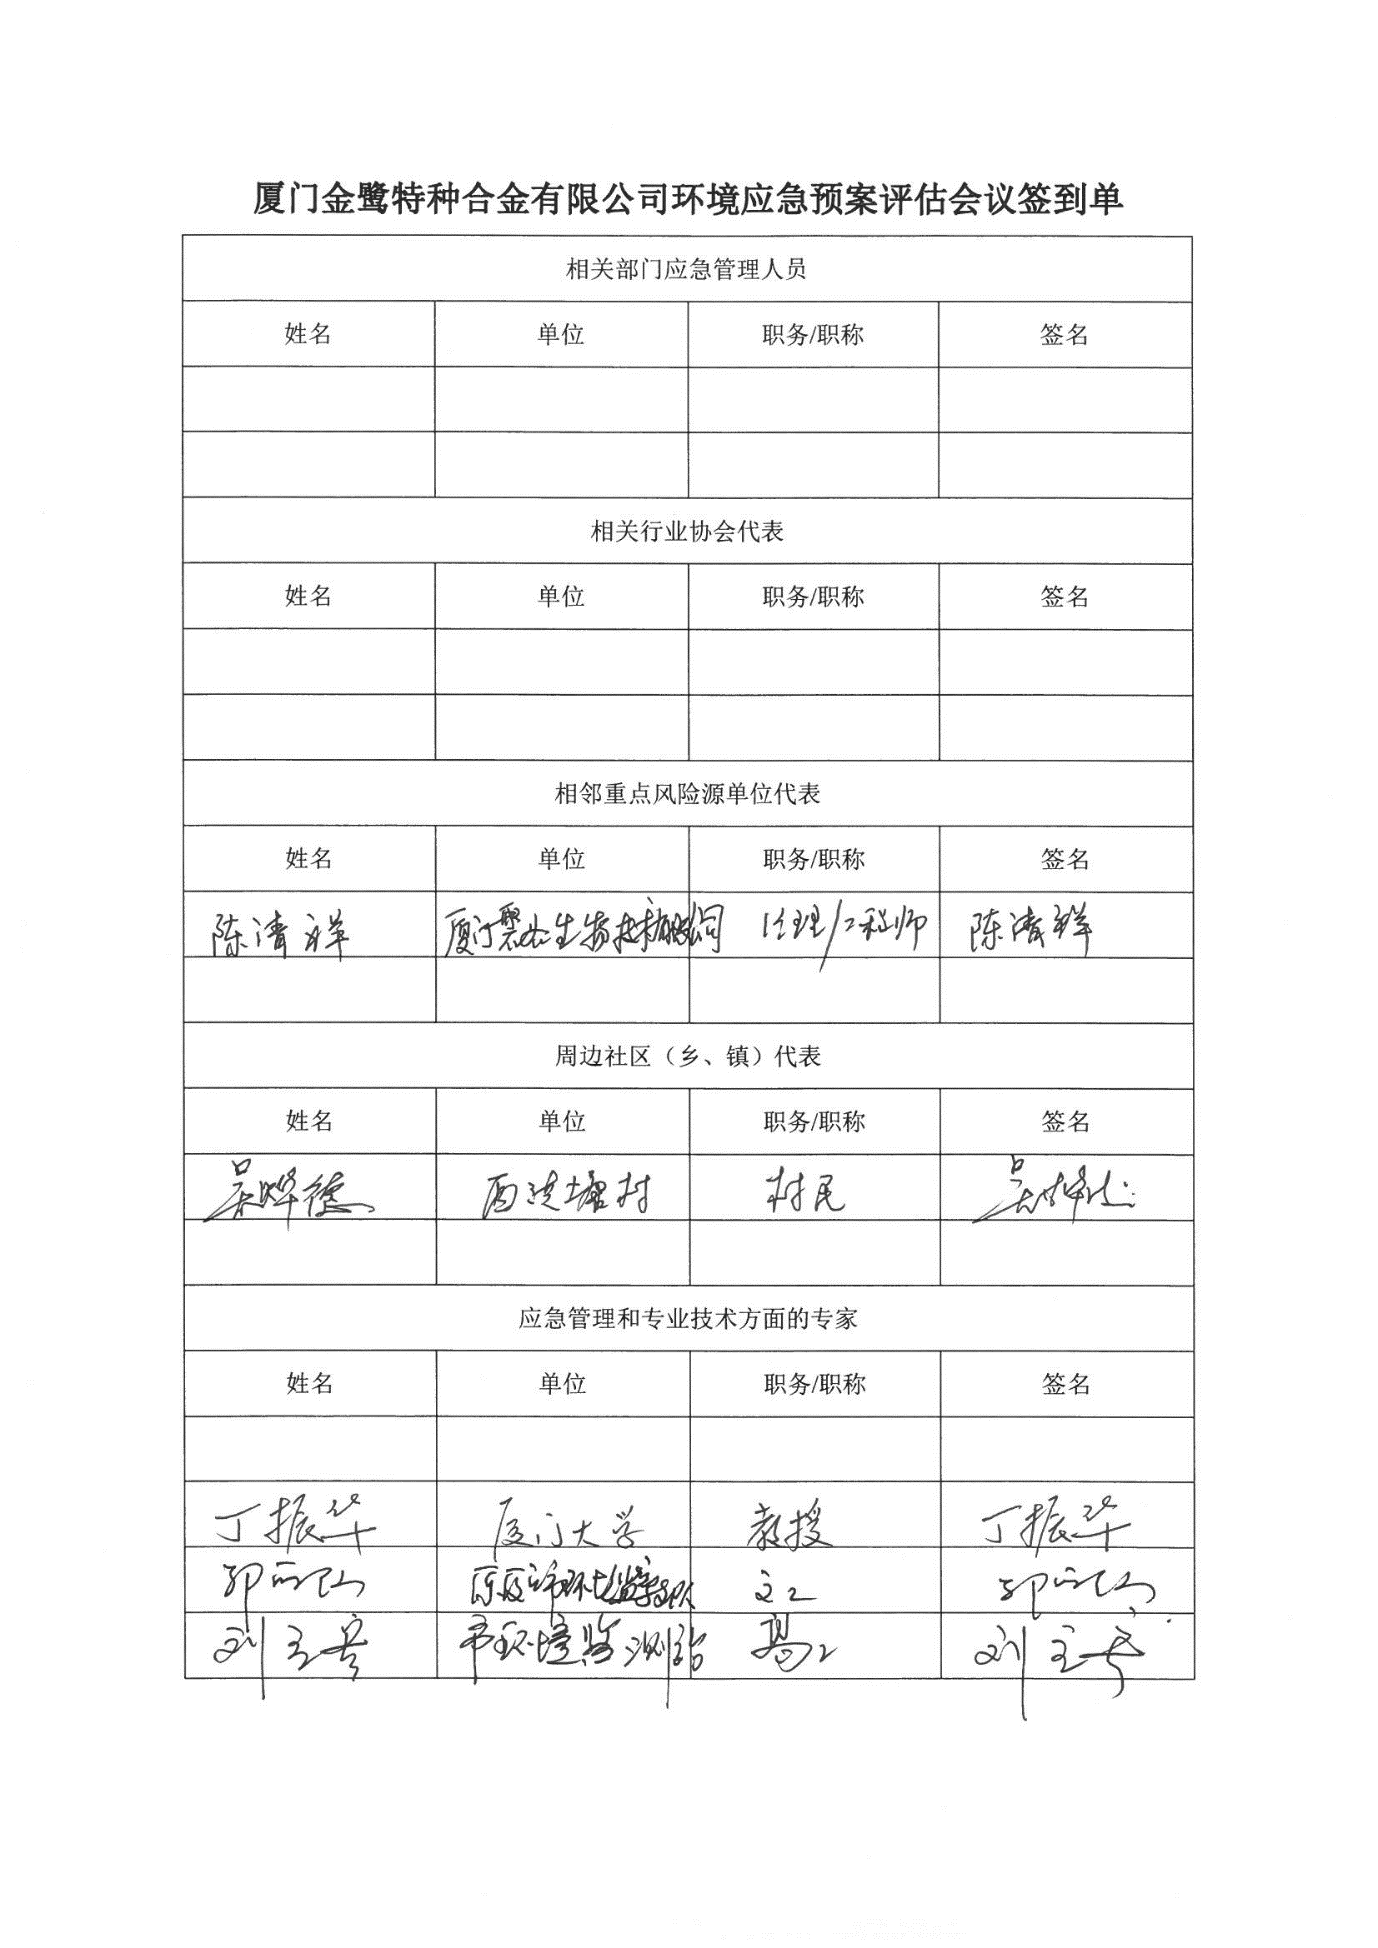 厦门金鹭特种合金有限公司环境应急预案评估会议签到单
相关部门应急管理人员
姓名 单位 职务/职称 签名
相关行业协会代表
姓名 单位 职务/职称 签名
相邻重点风险源单位代表
姓名 单位 职务/职称 签名
陈清祥 厦门 生物技术有限公司 经理/工程师 陈清祥
周边社区（乡、镇）代表
姓名 单位 职务/职称 签名
吴烨德 西 塘村 村民 吴烨德
应急管理和专业技术方面的专家
姓名 单位 职务/职称 签名
丁振华 厦门大学 教授 丁振华
郭 原厦门市环 支队 郭
刘 市环境监测站 高工 刘